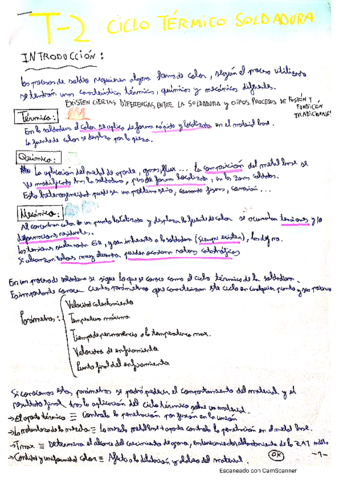 T-2 CICLO TÉRMICO SOLDADURA
INTRODUCCIÓN:
Los procesos de soldeo requieren alguna forma de calor, según el proceso utilizado
se tendrán unas características térmicas, químicas y mecánicas diferentes.
EXISTEN CIERTAS DIFERENCIAS ENTRE LA SOLDADURA Y OTROS PROCESOS DE FUSIÓN Y FUNDICIÓN TRADICIONALES:
Térmico:
En la soldadura el calor se aplica de forma rápida y localizada en el material base.
La fuente de calor se desplaza por la pieza.
Químico:
La aplicación del metal de aporte, gases, flux... la composición del metal base se
ve modificada tras la soldadura, pero de forma localizada, en las zonas soldadas.
Esta heterogeneidad puede ser un problema serio, causando fisuras, corrosión...
Mecánico:
Al concentrar calor en un punto localizado y desplazar la fuente de calor se ocasionan tensiones y/o
deformaciones residuales.
Las tensiones residuales son inherentes a la soldadura (siempre existen),
Si alcanzan valores muy elevados pueden ocasionar roturas catastróficas
En un proceso de soldadura se sigue lo que se conoce como el ciclo térmico de la soldadura.
Es importante conocer ciertos parámetros que caracterizan este ciclo en cualquier punto y son
Parámetros:
Velocidad calentamiento
Temperatura máxima
Tiempo de permanencia a la temperatura max.
Velocidad de enfriamiento
Punto final del enfriamiento
Si conocemos estos parámetros se podrá predecir el comportamiento del material y el
resultado final tras la aplicación del ciclo térmico sobre un material.
→ El aporte térmico ≡ Controla la penetración por fusión en la unión
→ La metal base + aporte controla la penetración en el metal base.
→ Tmax ≡ Determina el alcance del crecimiento de grano, endurecimiento/ablandamiento de la ZAT
→ Cantidad y calor ≡ Afecta a la del material.
OK
-1-
Escaneado con CamScanner